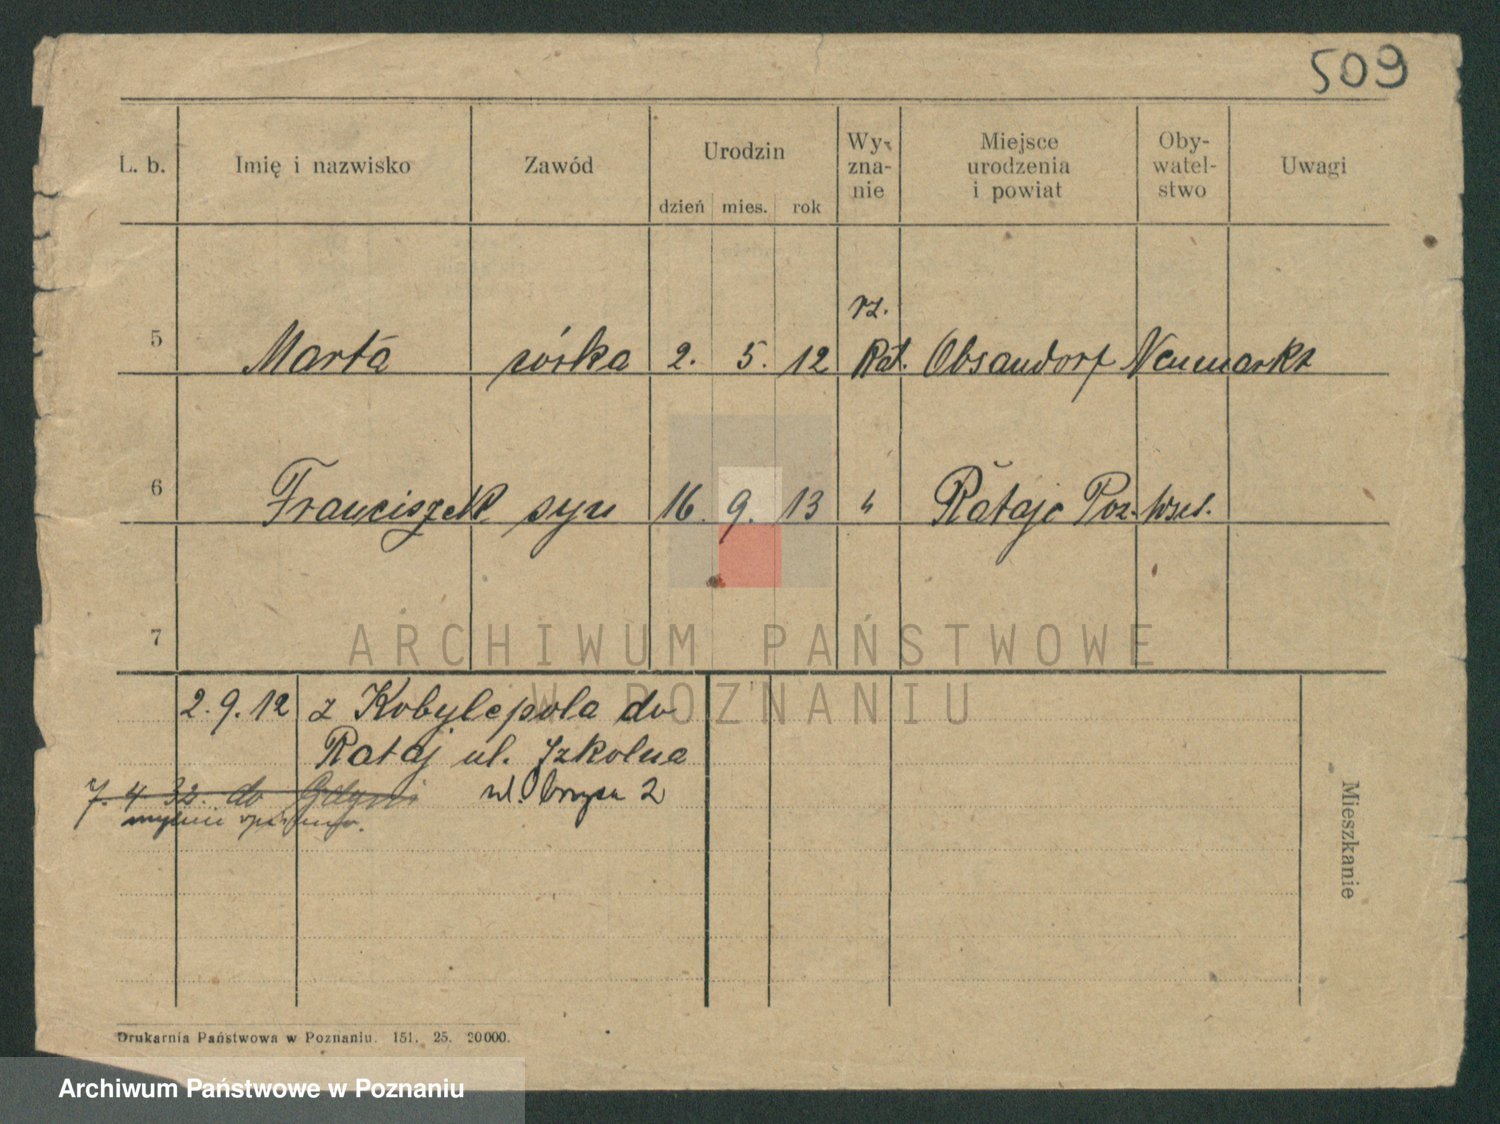 509
L. b. Imię i nazwisko Zawód Urodzin dzień mies. rok Wy-zna-nie Miejsce urodzenia i powiat Oby-watel-stwo Uwagi
rz.
5 Marta córka 2. 5. 12 Kat. Obsendorf Neumarkt
6 Franciszek syn 16. 9. 13 " Rataje Poz. Wsch.
7
ARCHIWUM PAŃSTWOWE
W POZNANIU
2. 9. 12 z Kobylepola do
Rataj ul. Szkolna
7. 4. 32. do Gdyni ul. 2
Mieszkanie
Drukarnia Państwowa w Poznaniu. 151. 25. 20000.
Archiwum Państwowe w Poznaniu